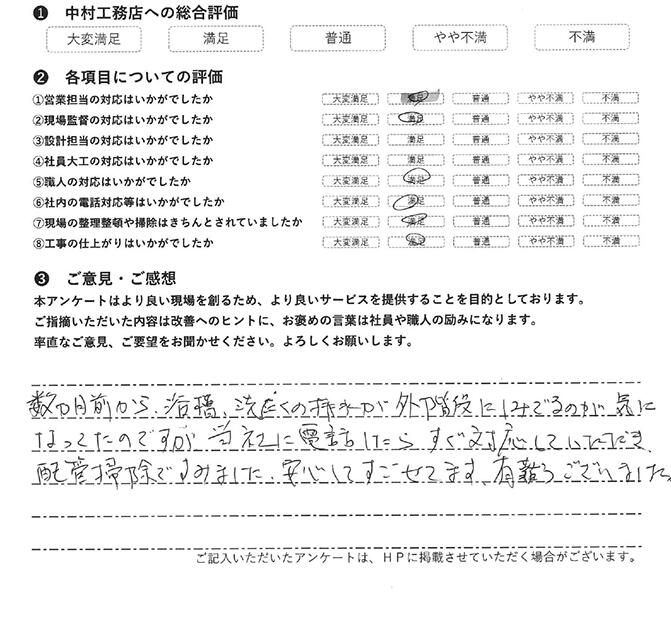 ❶ 中村工務店への総合評価
大変満足 満足 普通 やや不満 不満
❷ 各項目についての評価
①営業担当の対応はいかがでしたか 大変満足 満足 普通 やや不満 不満
②現場監督の対応はいかがでしたか 大変満足 満足 普通 やや不満 不満
③設計担当の対応はいかがでしたか 大変満足 満足 普通 やや不満 不満
④社員大工の対応はいかがでしたか 大変満足 満足 普通 やや不満 不満
⑤職人の対応はいかがでしたか 大変満足 満足 普通 やや不満 不満
⑥社内の電話対応等はいかがでしたか 大変満足 満足 普通 やや不満 不満
⑦現場の整理整頓や掃除はきちんとされていましたか 大変満足 満足 普通 やや不満 不満
⑧工事の仕上がりはいかがでしたか 大変満足 満足 普通 やや不満 不満
❸ ご意見・ご感想
本アンケートはより良い現場を創るため、より良いサービスを提供することを目的としております。
ご指摘いただいた内容は改善へのヒントに、お褒めの言葉は社員や職人の励みになります。
率直なご意見、ご要望をお聞かせください。よろしくお願いします。
数カ月前から、浴槽、洗たくの排水が外階段にしみでるのが気に
なってたのですが当社に電話したらすぐ対応していただき、
配管掃除ですみました、安心してすごせてます、有難うございました。
ご記入いただいたアンケートは、HPに掲載させていただく場合がございます。